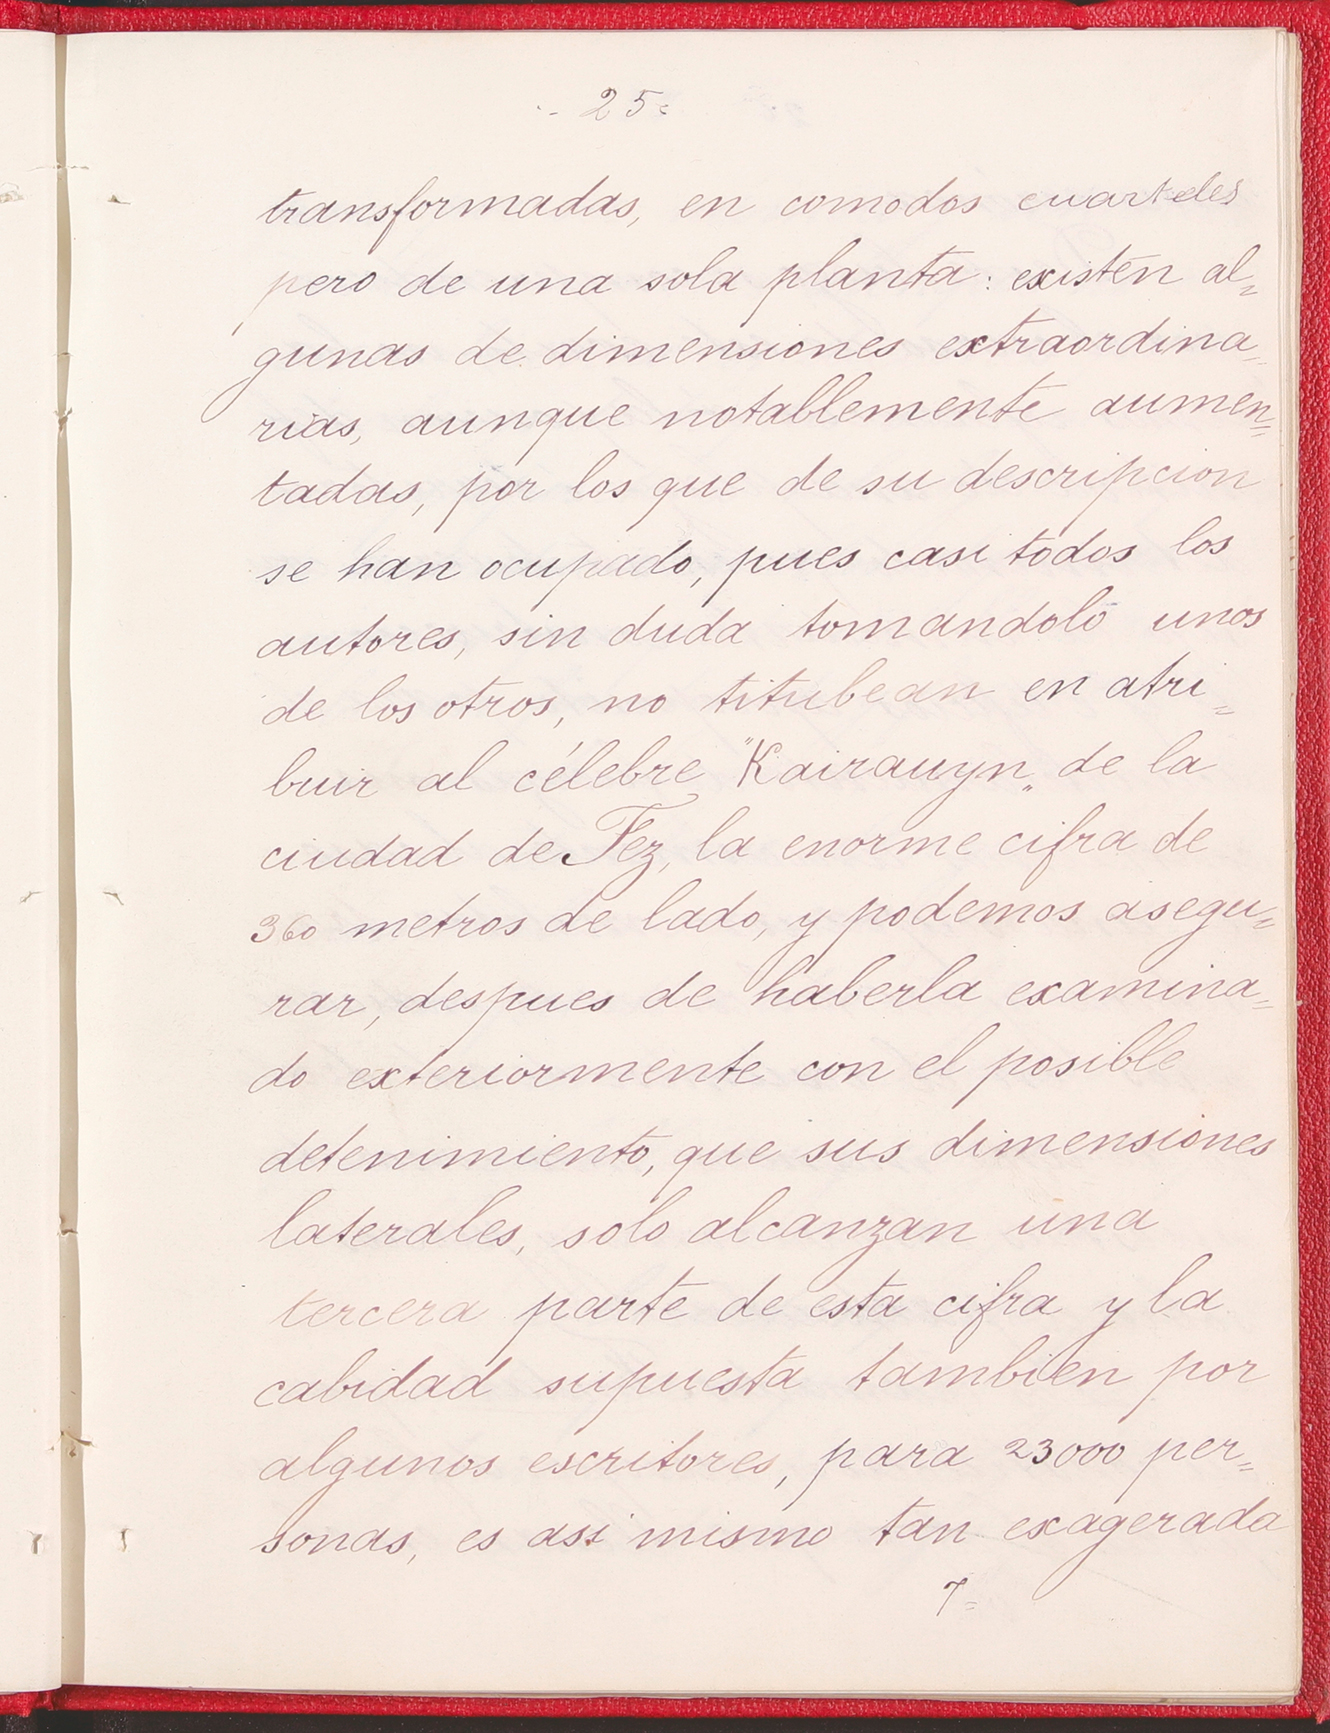 -- 25=
transformadas, en comodos cuarteles
pero de una sola planta: existen al=
gunas de dimensiones extraordina=
rias, aunque notablemente aumen=
tadas, por los que de su descripcion
se han ocupado, pues casi todos los
autores, sin duda tomandolo unos
de los otros, no titubean en atri=
buir al célebre "Kairauyn„ de la
ciudad de Fez, la enorme cifra de
360 metros de lado, y podemos asegu=
rar, despues de haberla examina=
do exteriormente con el posible
detenimiento, que sus dimensiones
laterales, solo alcanzan una
tercera parte de esta cifra y la
cabidad supuesta tambien por
algunos escritores, para 23000 per=
sonas, es asi mismo tan exagerada
7=